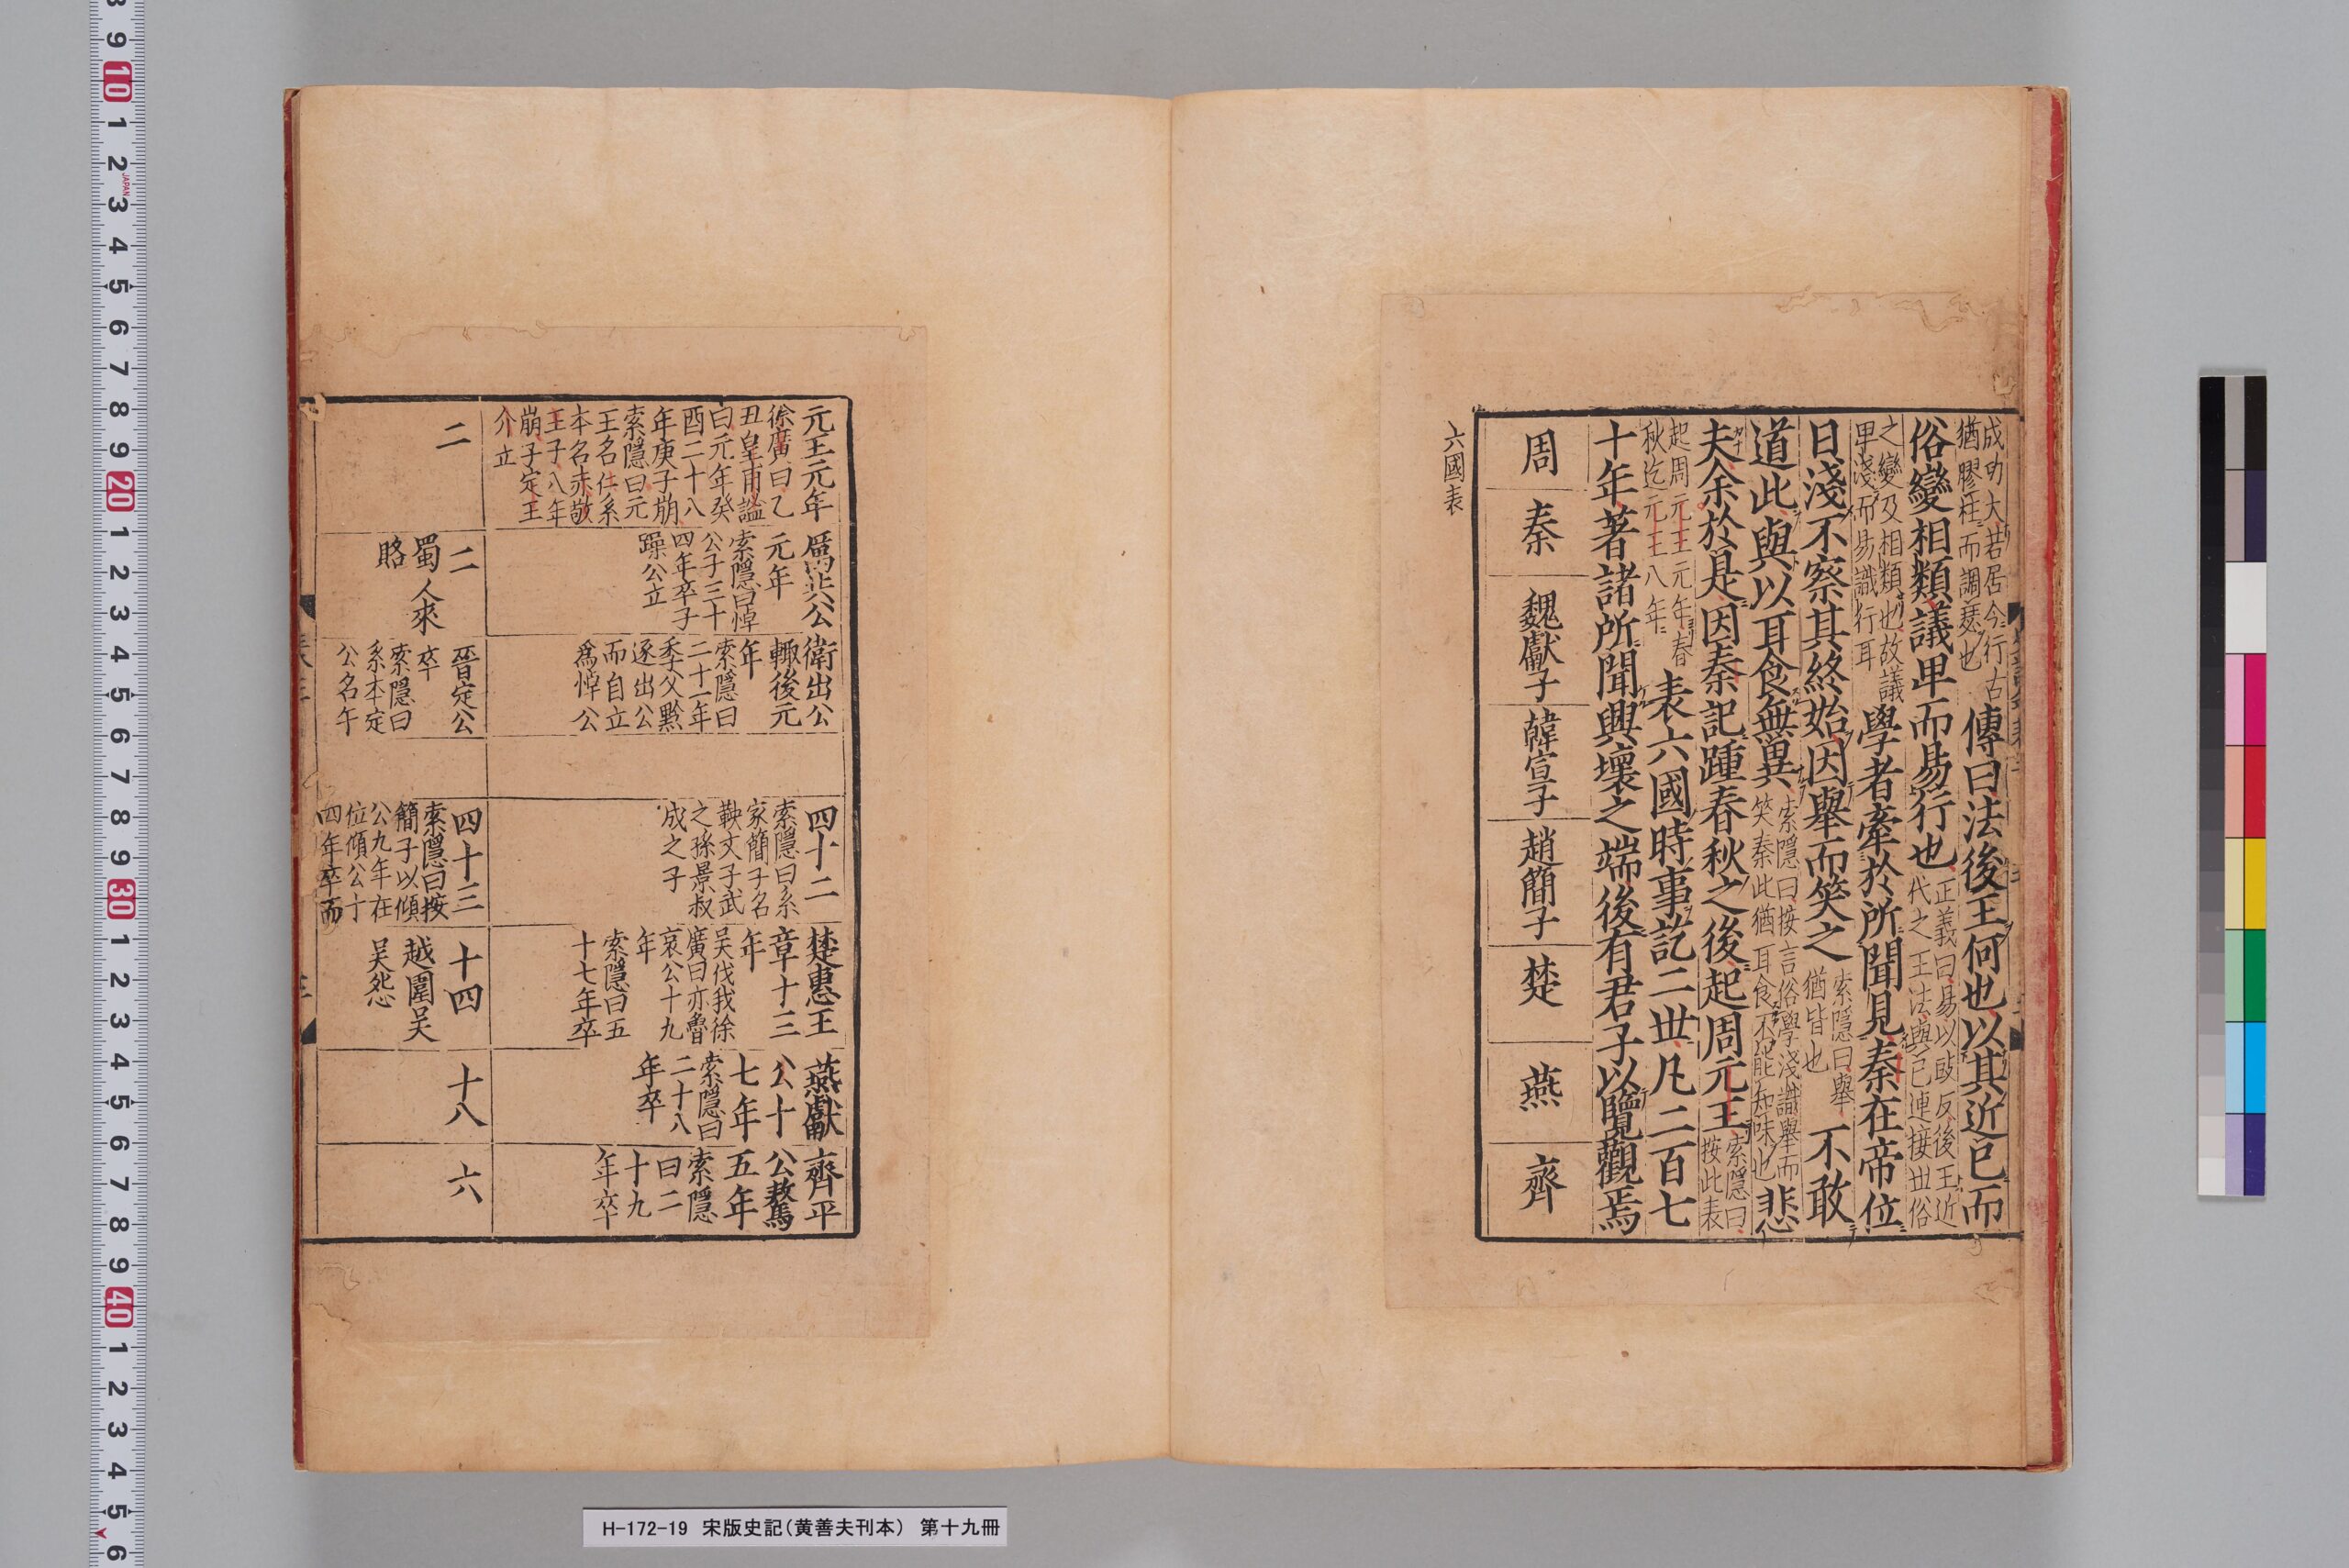 成功大若居今行古
猶膠柱而調瑟也
傳曰法後王何也以其近已而
俗變相類議卑而易行也
正義曰易以豉反後王近
代之王法與已連接世俗
之變及相類也故議
卑淺而易識行耳
學者牽於所聞見秦在帝位
日淺不察其終始因舉而笑之
索隱曰舉
猶皆也
不敢
道此與以耳食無異
索隱曰按言俗學淺識舉而
笑秦此猶耳食不能知味也
悲
夫余於是因秦記踵春秋之後起周元王
索隱曰
按此表
起周元王元年春
秋迄元王八年
表六國時事訖二世凡二百七
十年著諸所聞興壞之端後有君子以覽觀焉
周
秦
魏獻子
韓宣子
趙簡子
楚
燕
齊
六國表
元王元年
徐廣曰乙
丑皇甫謐
曰元年癸
酉二十八
年庚子崩
索隱曰元
王名仁系
本名赤敬
王子八年
崩子定王
介立
厲共公
元年
索隱曰悼
公子三十
四年卒子
躁公立
衛出公
輒後元
年
索隱曰
二十一年
季父黔
逐出公
而自立
爲悼公
四十二
索隱曰系
家簡子名
鞅文子武
之孫景叔
成之子
楚惠王
章十三
年
吴伐我徐
廣曰亦魯
哀公十九
年
索隱曰五
十七年卒
燕獻
公十
七年
索隱曰
二十八
年卒
齊平
公驁
五年
索隱
曰二
十九
年卒
二
二
蜀人來
賂
晉定公
卒
索隱曰
系本定
公名午
四十三
索隱曰按
簡子以傾
公九年在
位傾公十
四年卒而
十四
越圍吴
吴怨
十八
六
H-172-19 宋版史記(黄善夫刊本) 第十九冊